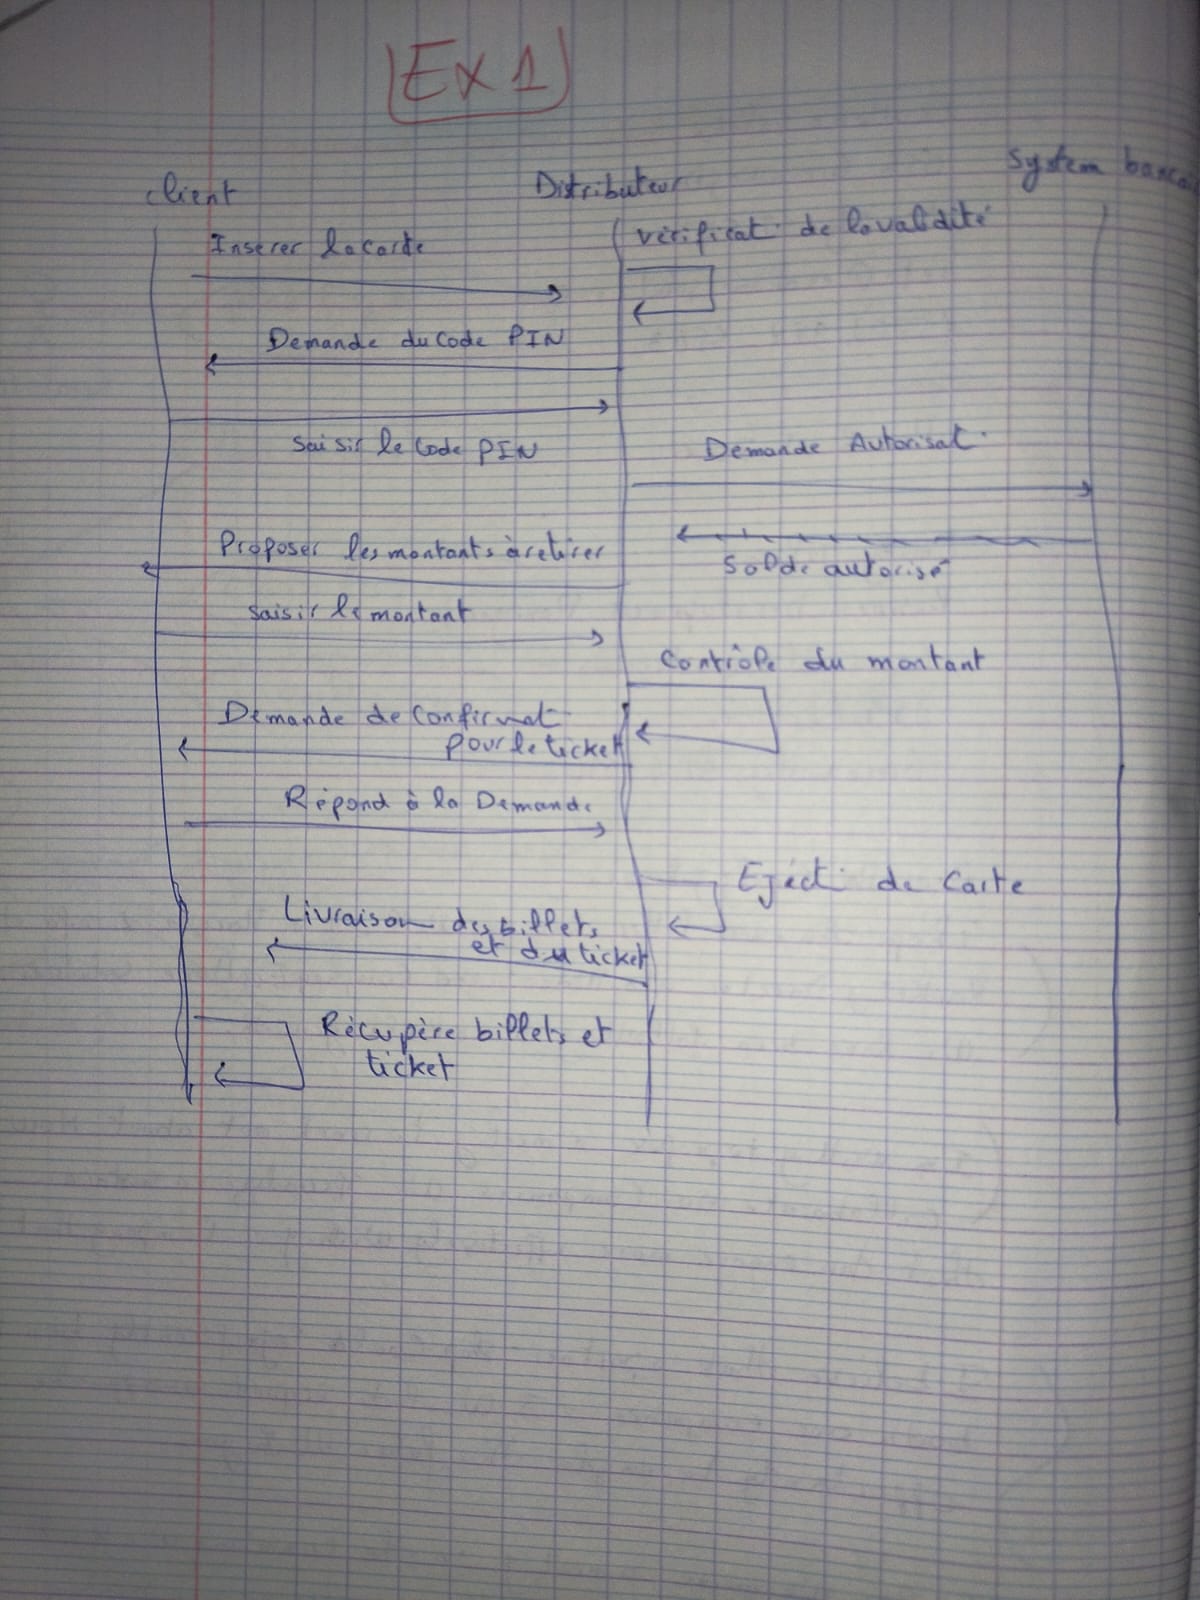 Ex 1
client
Distributeur
System banca
Inserer la carte
vérificat° de la validité
Demande du code PIN
Saisir le code PIN
Demande Autorisat°
Proposer les montants à retirer
Solde autorisé
Saisir le montant
Contrôle du montant
Demande de Confirmat°
pour le ticket
Répond à la Demande
Eject° de Carte
Livraison des billets
et du ticket
Récupère billets et
ticket